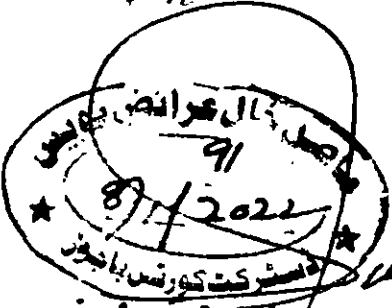 فیصل خان عرائض نویس
91
8/1/2022
ڈسٹرکٹ کورٹس باجوڑ